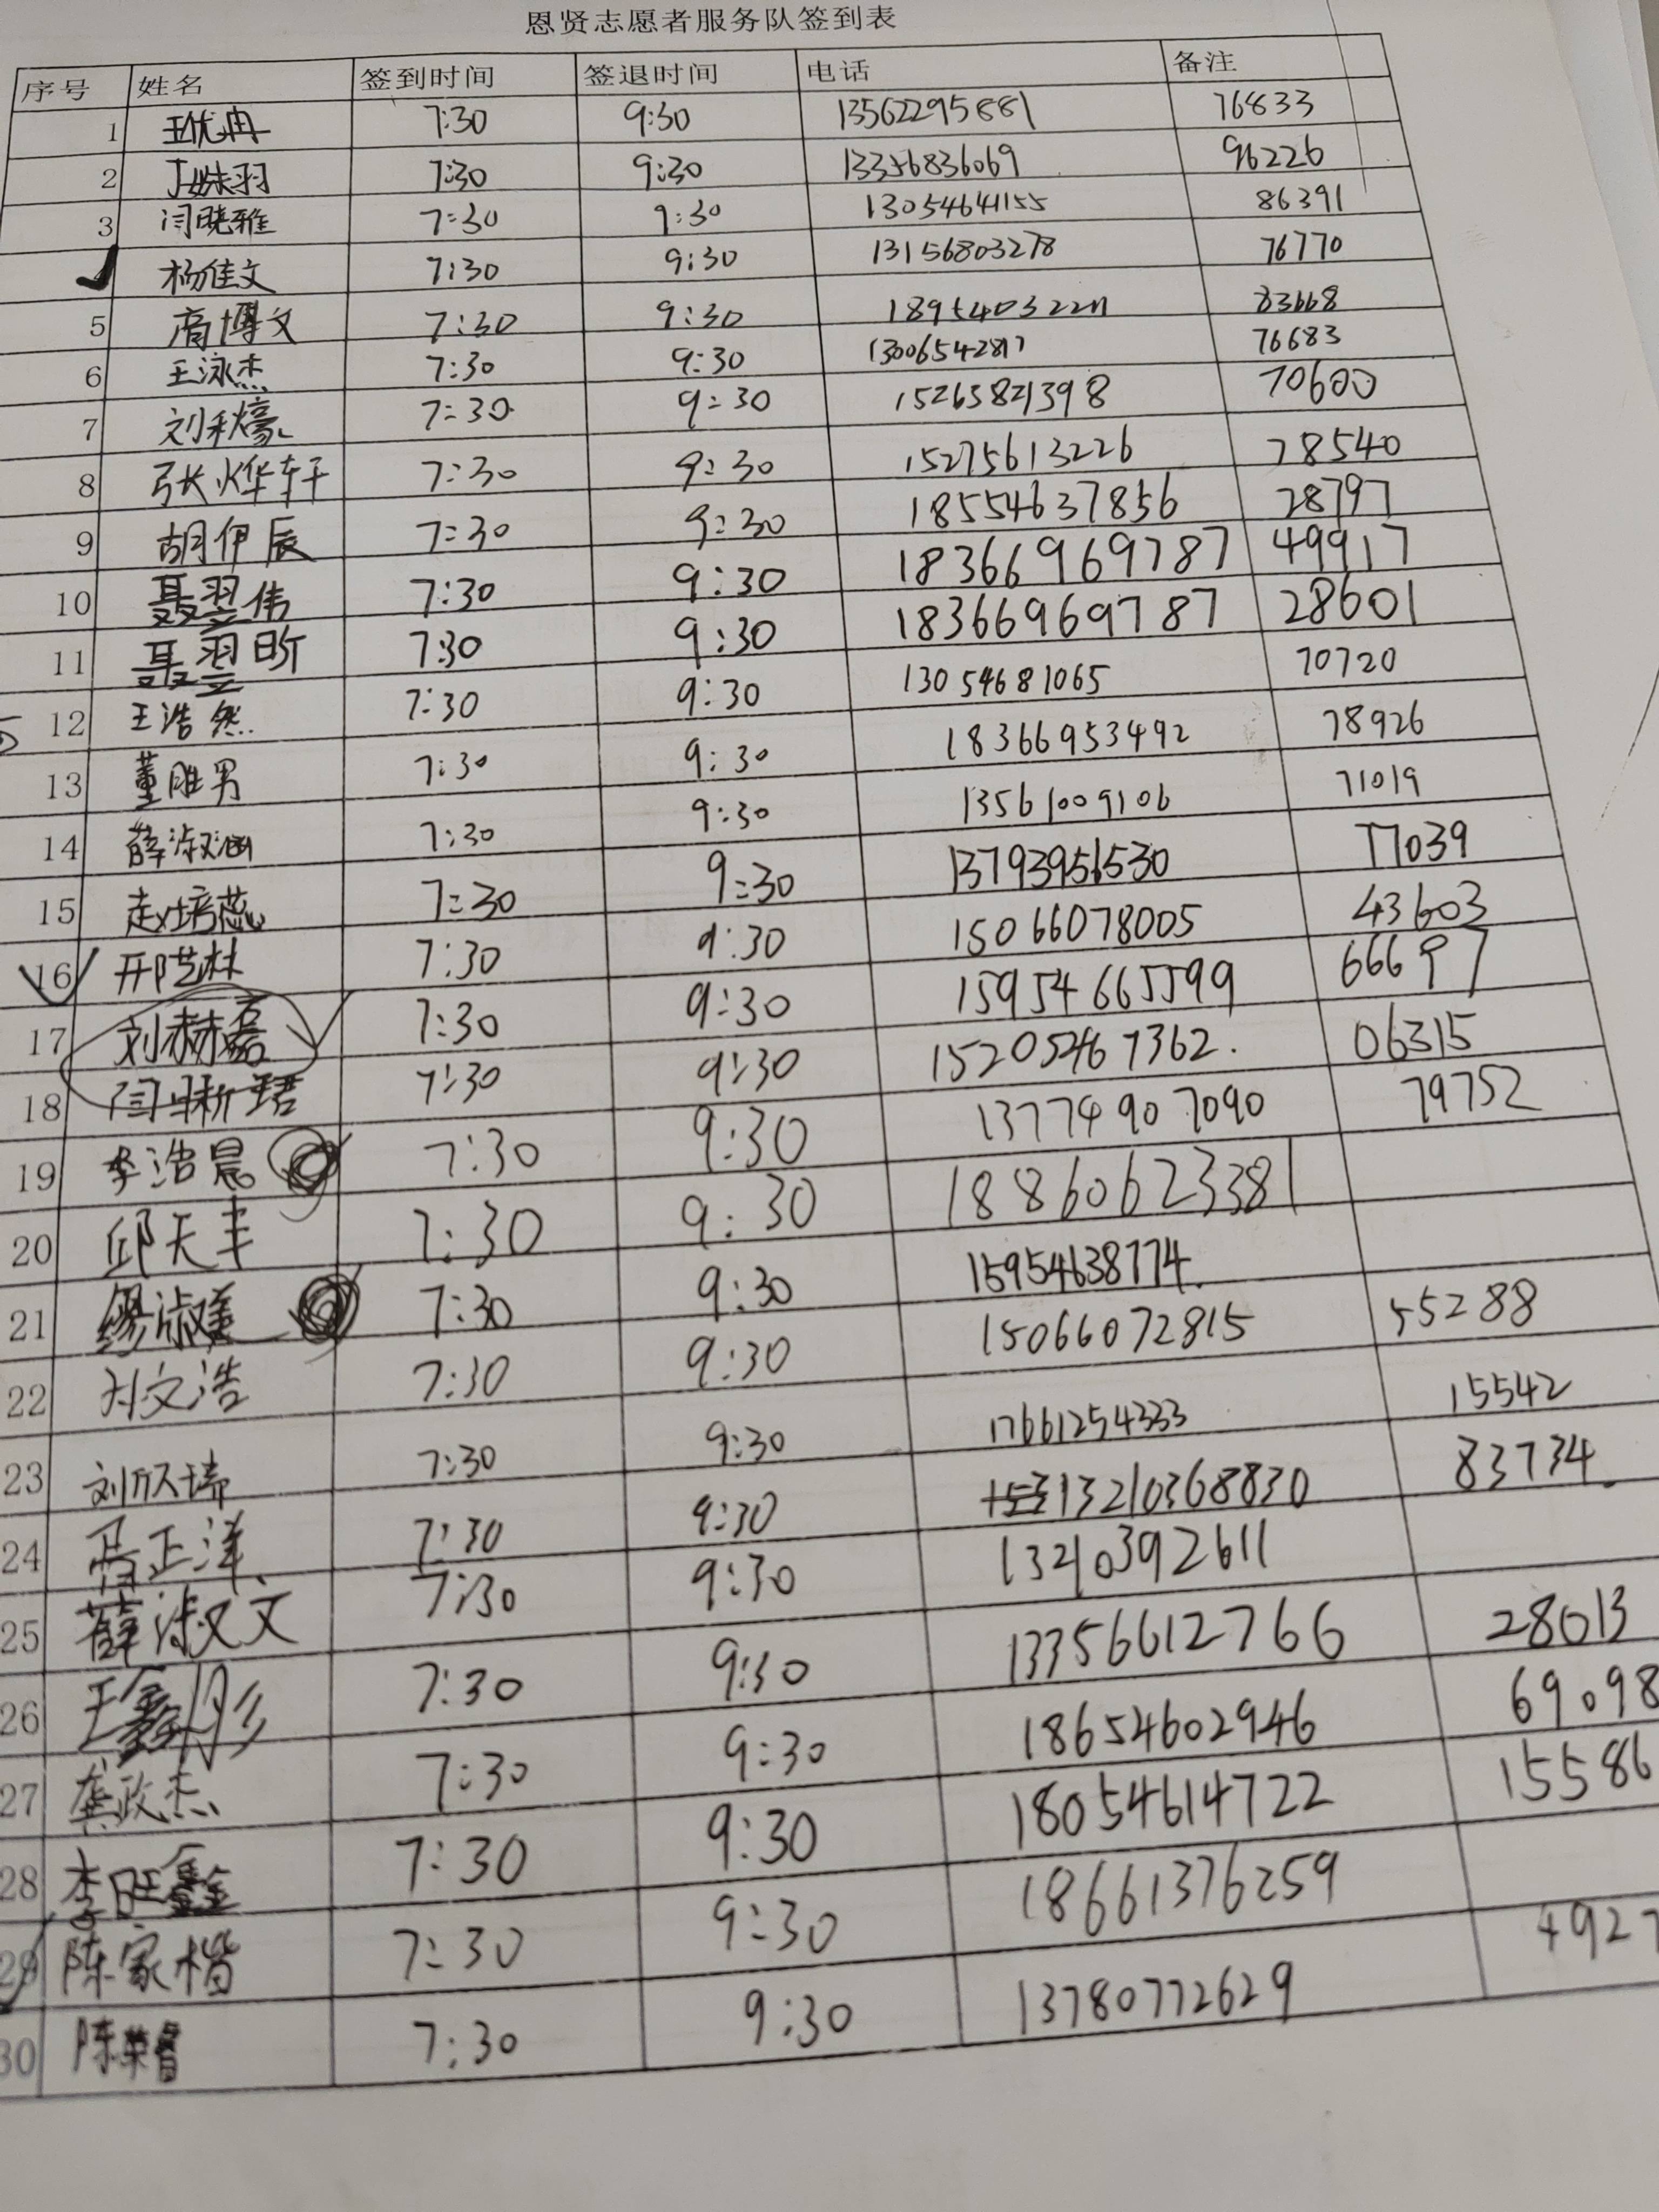 恩贤志愿者服务队签到表
序号 姓名 签到时间 签退时间 电话 备注
1 王优冉 7:30 9:30 13562295881 76833
2 丁姝羽 7:30 9:30 13356836069 96226
3 闫晓雅 7:30 9:30 13054641155 86391
杨佳文 7:30 9:30 13156803278 76770
5 商博文 7:30 9:30 83668
6 王泳杰 7:30 9:30 13006542817 76683
7 刘秋濠 7:30 9:30 15265821398 70600
8 张烨轩 7:30 9:30 15275613226 78540
9 胡伊辰 7:30 9:30 18554637856 28797
10 聂翌伟 7:30 9:30 18366969787 49917
11 聂翌昕 7:30 9:30 18366969787 28601
12 王浩然 7:30 9:30 13054681065 70720
13 董胜男 7:30 9:30 18366953492 78926
14 薛淑涵 7:30 9:30 13561009106 71019
15 赵培蕊 7:30 9:30 13793951530 77039
16 邢艺林 7:30 9:30 15066078005 43603
17 刘赫磊 7:30 9:30 15954665599 66697
18 闫晰珺 7:30 9:30 15205467362. 06315
19 李浩晨 7:30 9:30 13774907090 79752
20 邱天丰 7:30 9:30 18860623381
21 缪淑美 7:30 9:30 15954638774.
22 刘文浩 7:30 9:30 15066072815 55288
23 刘欣瑞 7:30 9:30 17661254333 15542
24 冯正洋 7:30 9:30 13210368830 83734.
25 薛淑文 7:30 9:30 13210392611
26 王鑫彤 7:30 9:30 13356612766 28013
27 龚政杰 7:30 9:30 18654602946 69098
28 李旺鑫 7:30 9:30 18054614722 15586
29 陈家楷 7:30 9:30 18661376259
30 陈荣 7:30 9:30 13780772629 4927